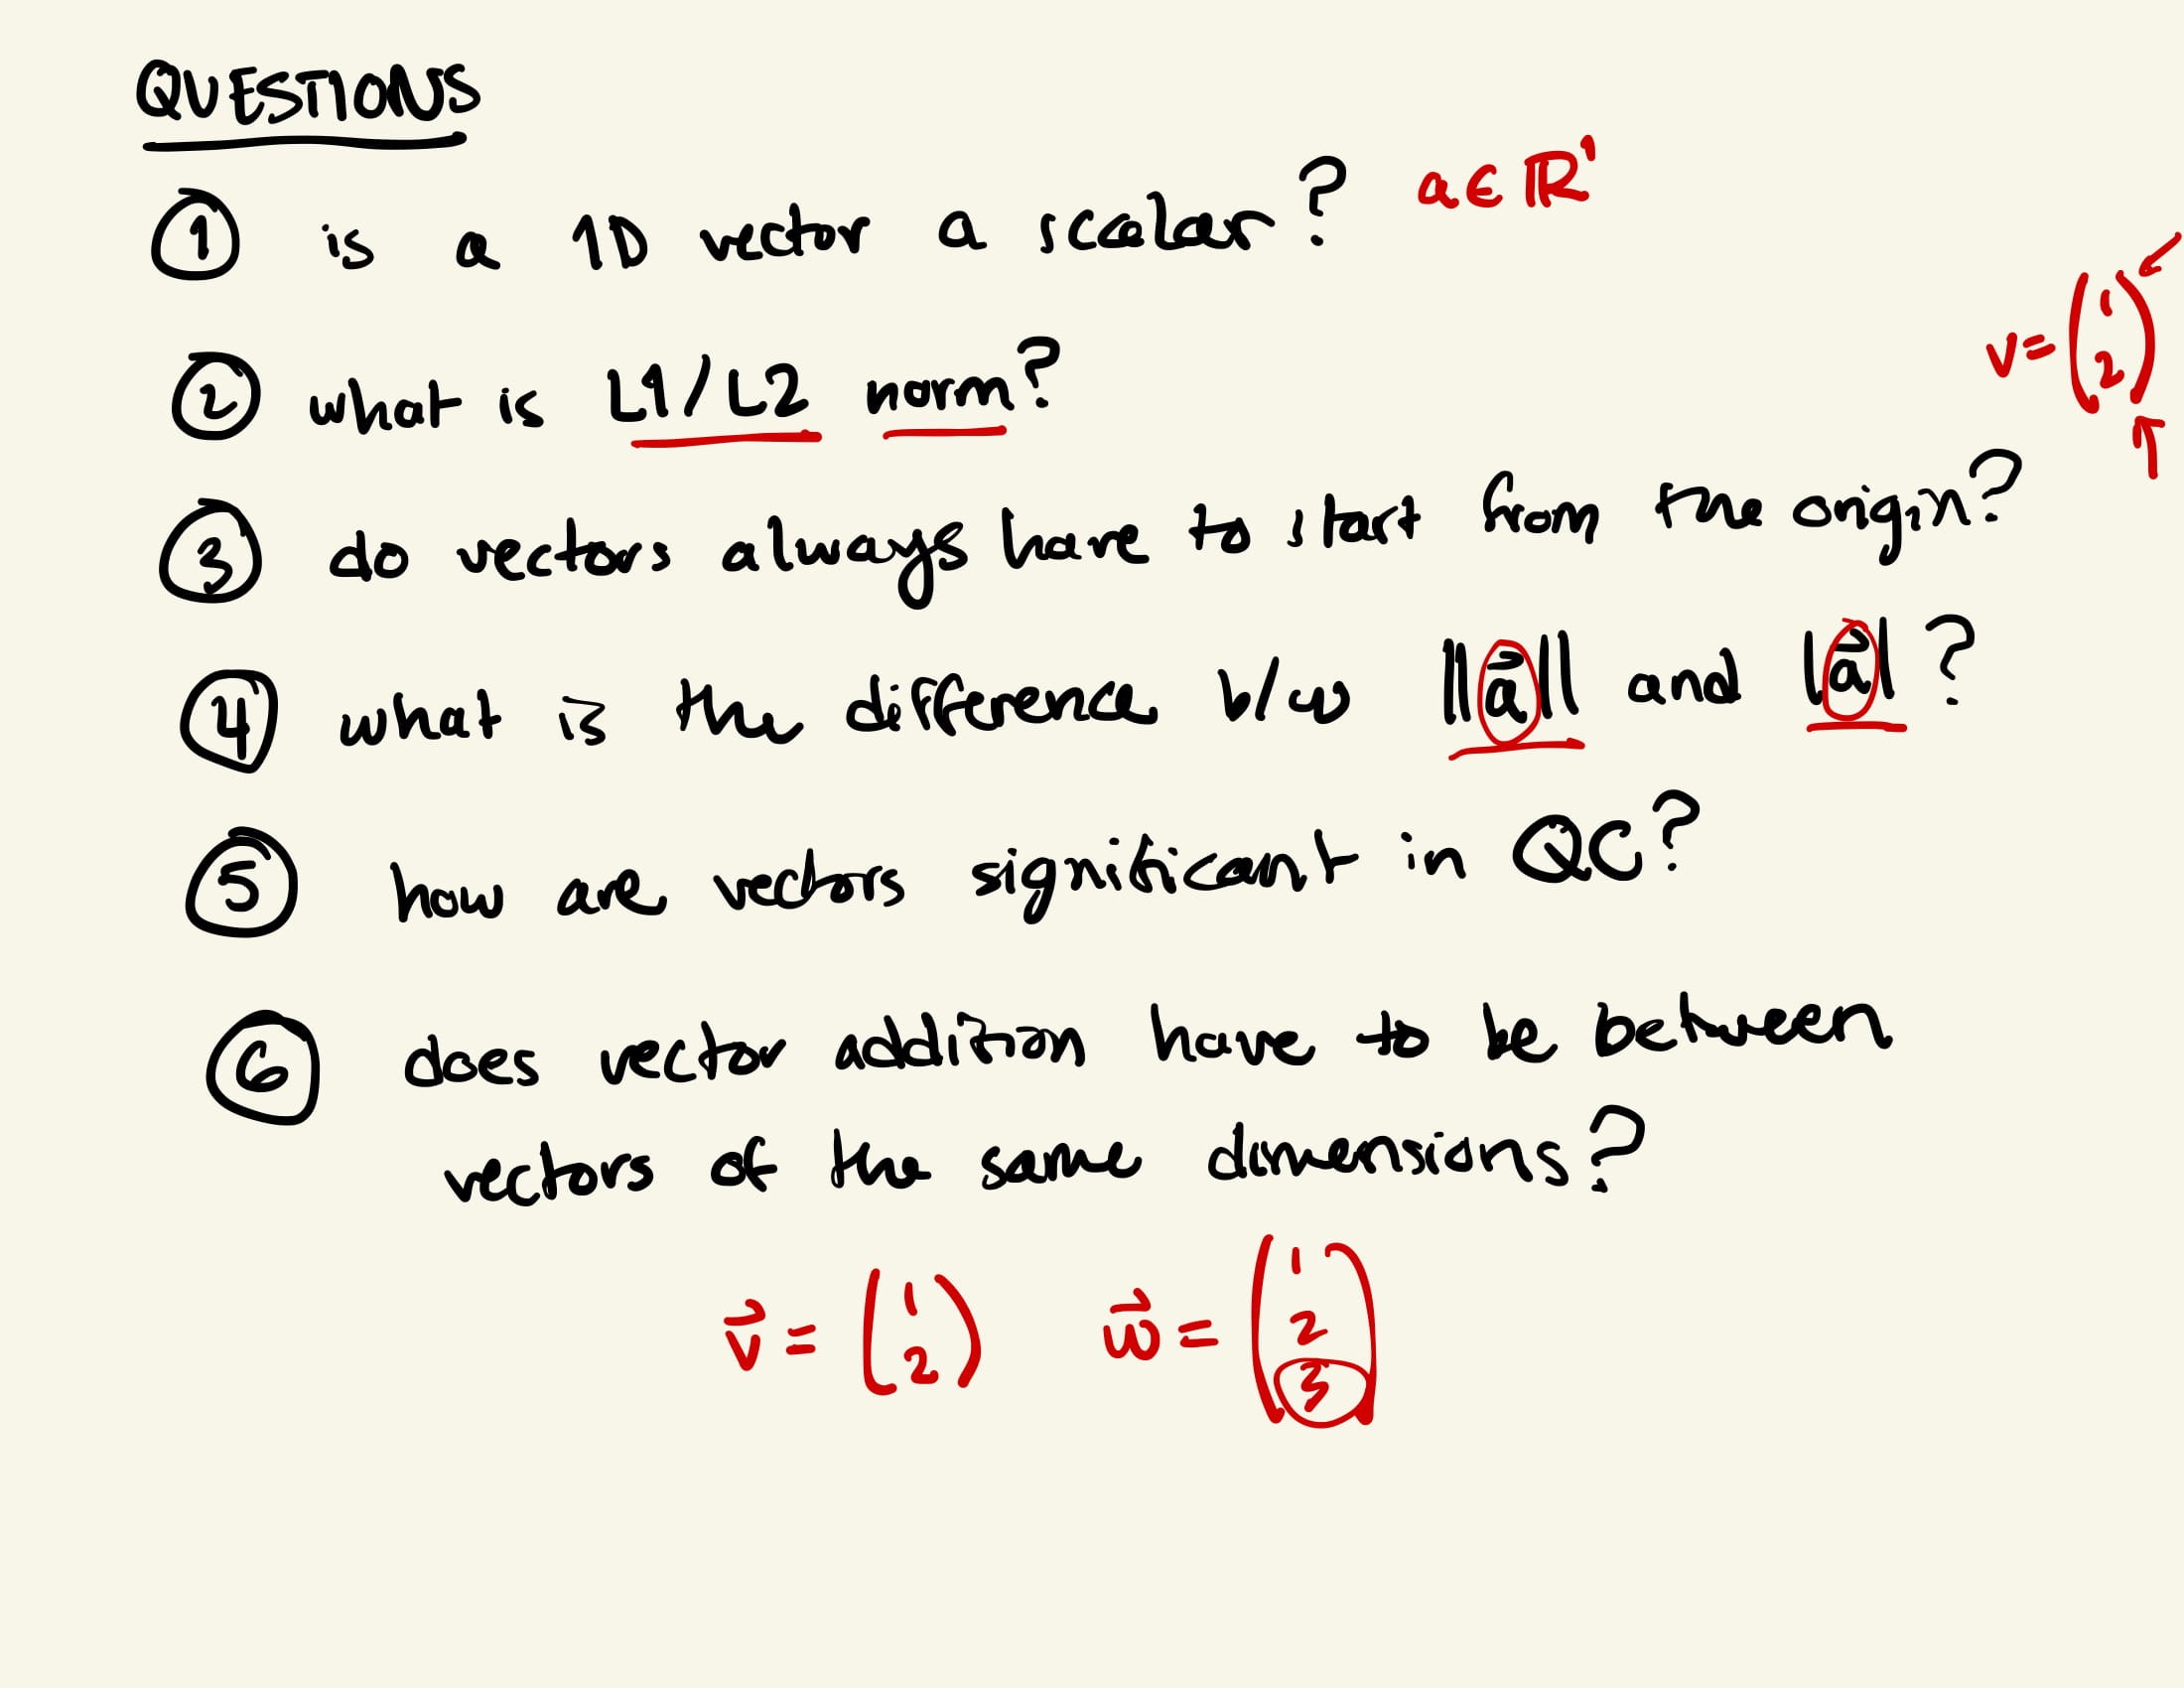 QUESTIONS
① is a 1D vector a scalar? a∈ℝ¹
v = (1 2)
② what is L1/L2 norm?
③ do vectors always have to start from the origin?
④ what is the difference b/w ||a⃗|| and |a⃗|?
⑤ how are vectors significant in QC?
⑥ does vector addition have to be between
vectors of the same dimensions?
v⃗ = (1 2) w⃗ = (1 2 3)